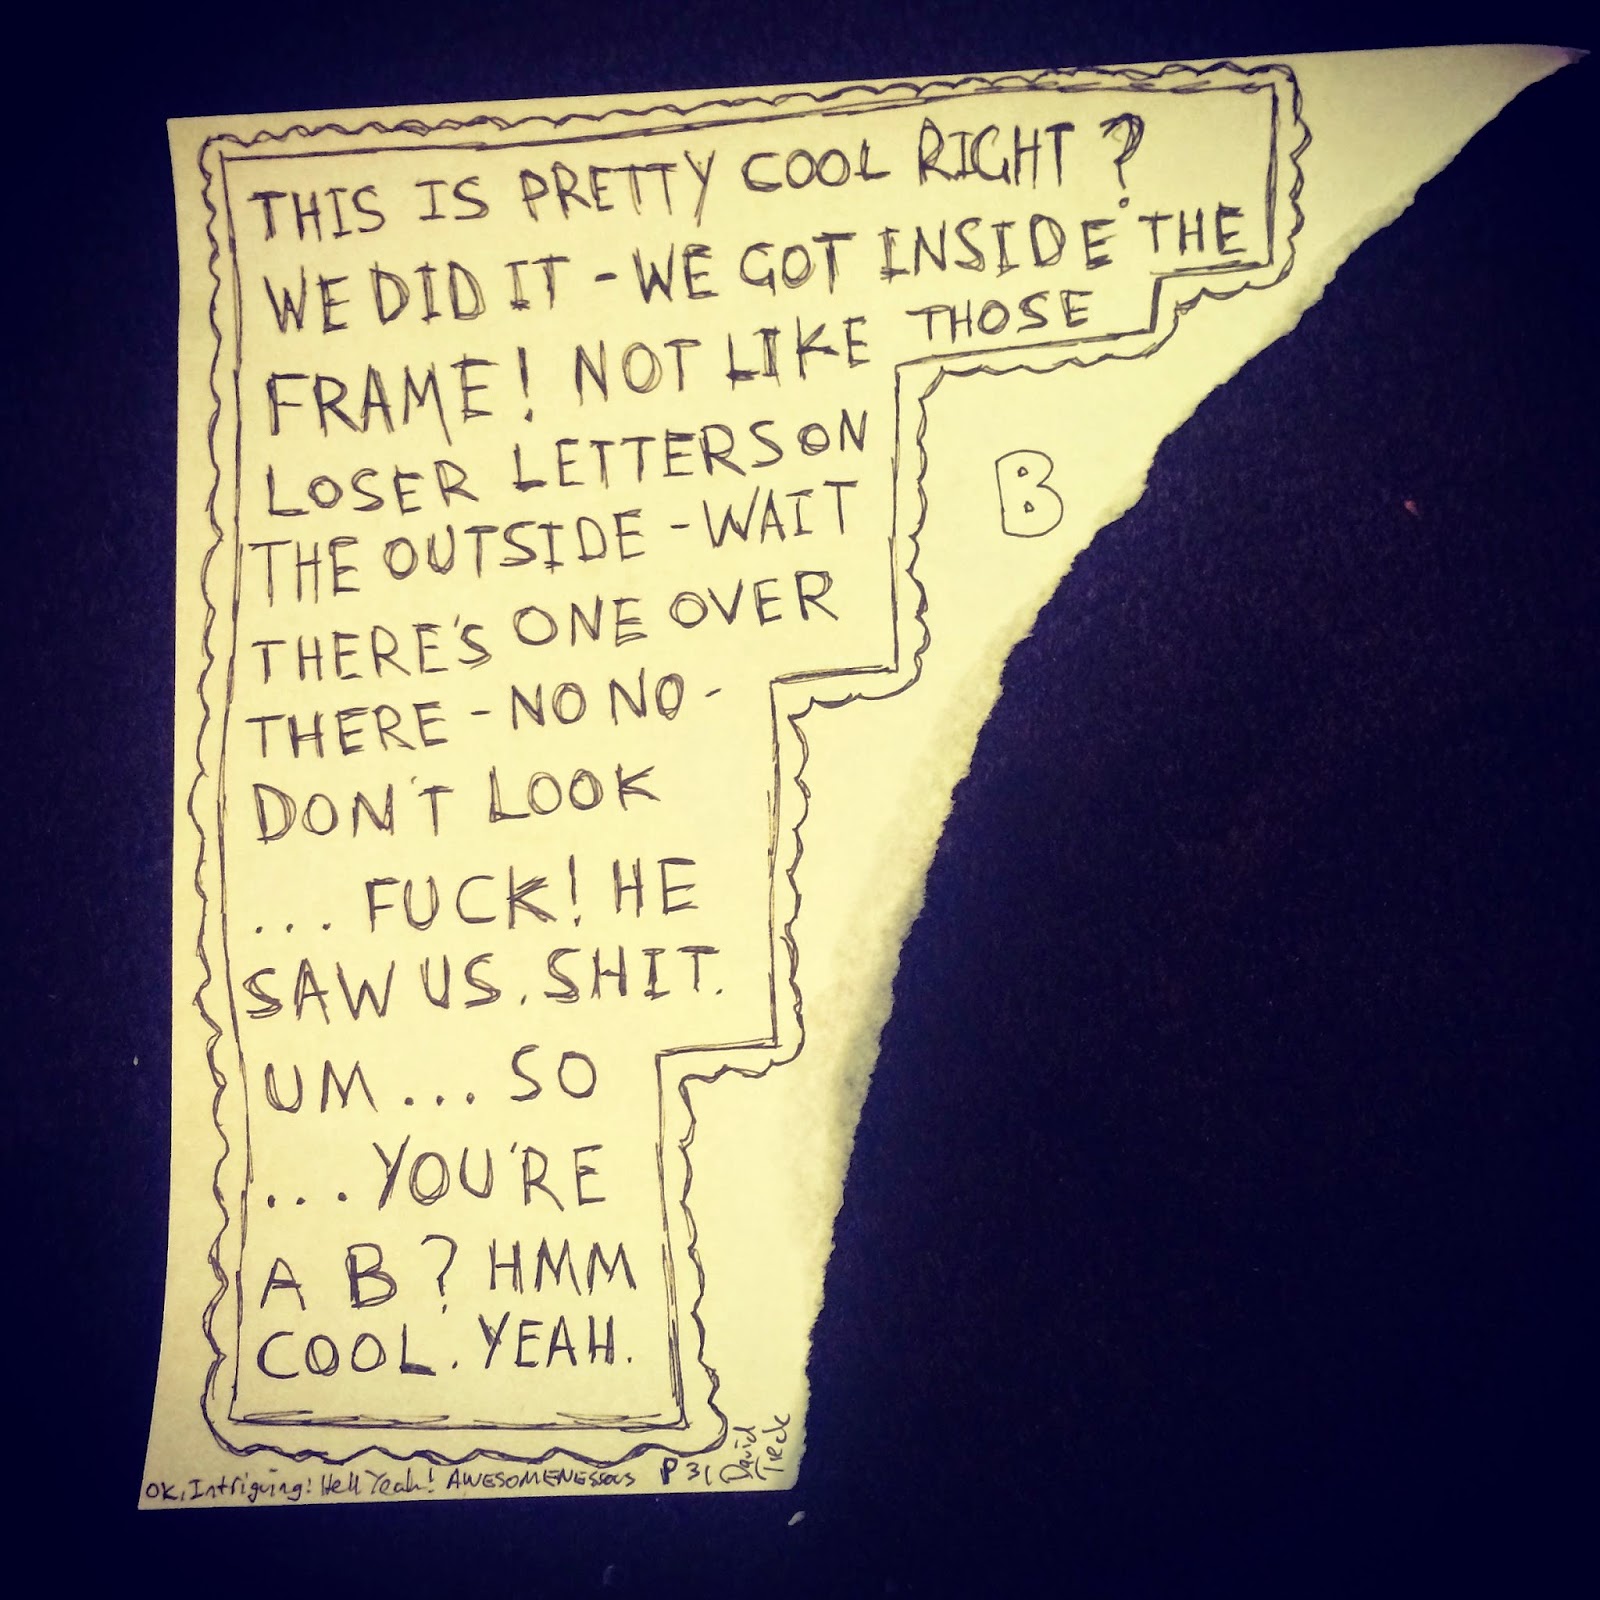 THIS IS PRETTY COOL RIGHT?
WE DID IT - WE GOT INSIDE THE
FRAME! NOT LIKE THOSE
LOSER LETTERS ON
THE OUTSIDE - WAIT
THERE'S ONE OVER
THERE - NO NO -
DON'T LOOK
... FUCK! HE
SAW US. SHIT.
UM ... SO
... YOU'RE
A B? HMM
COOL. YEAH.
B
OK, Intriguing! Hell Yeah! AWESOMENESSOUS P 31
David